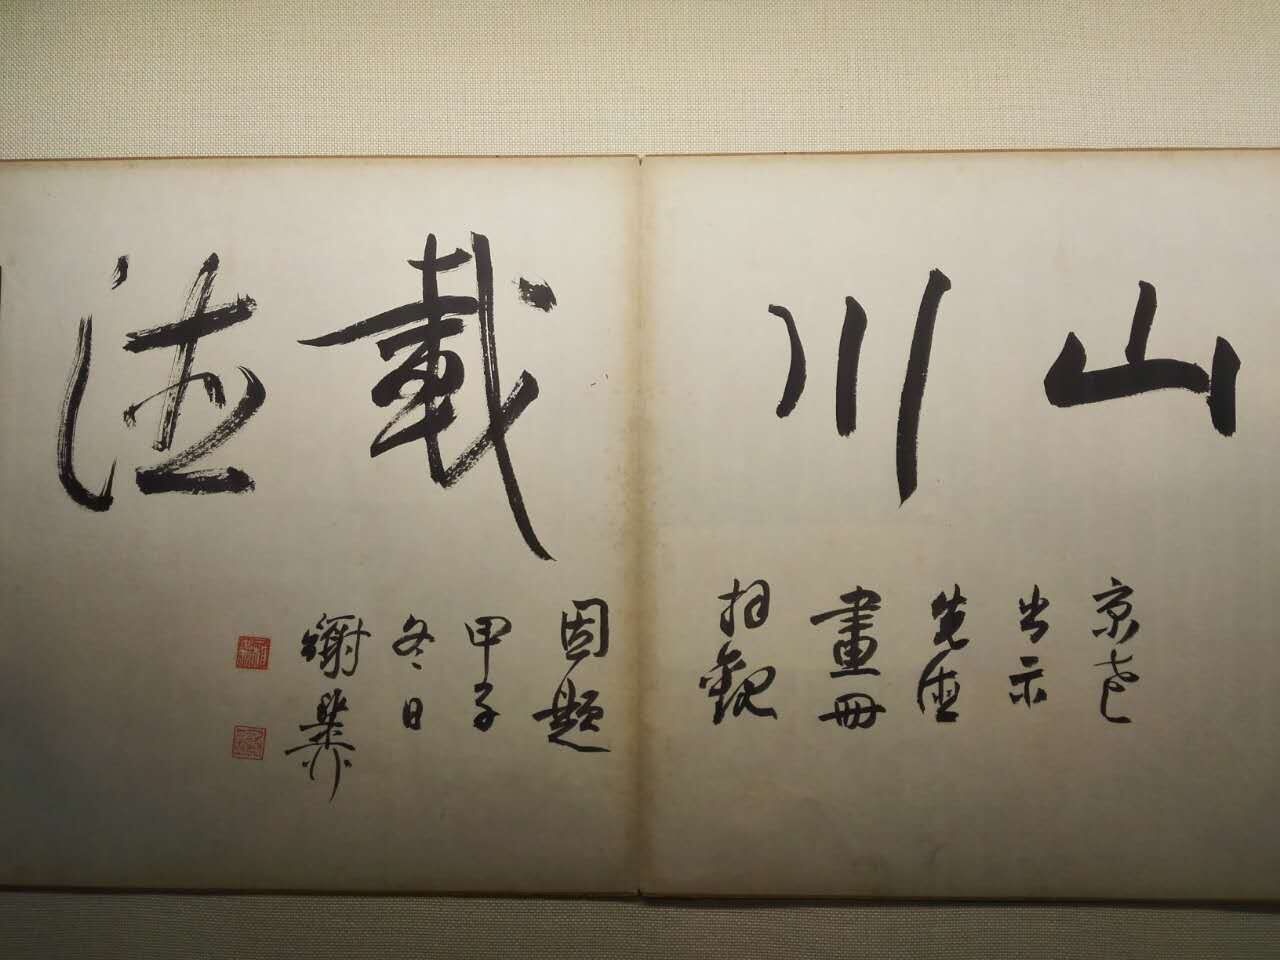 山川載德
京老
出示
先德
畫冊
拜觀
因題
甲子
冬日
謝